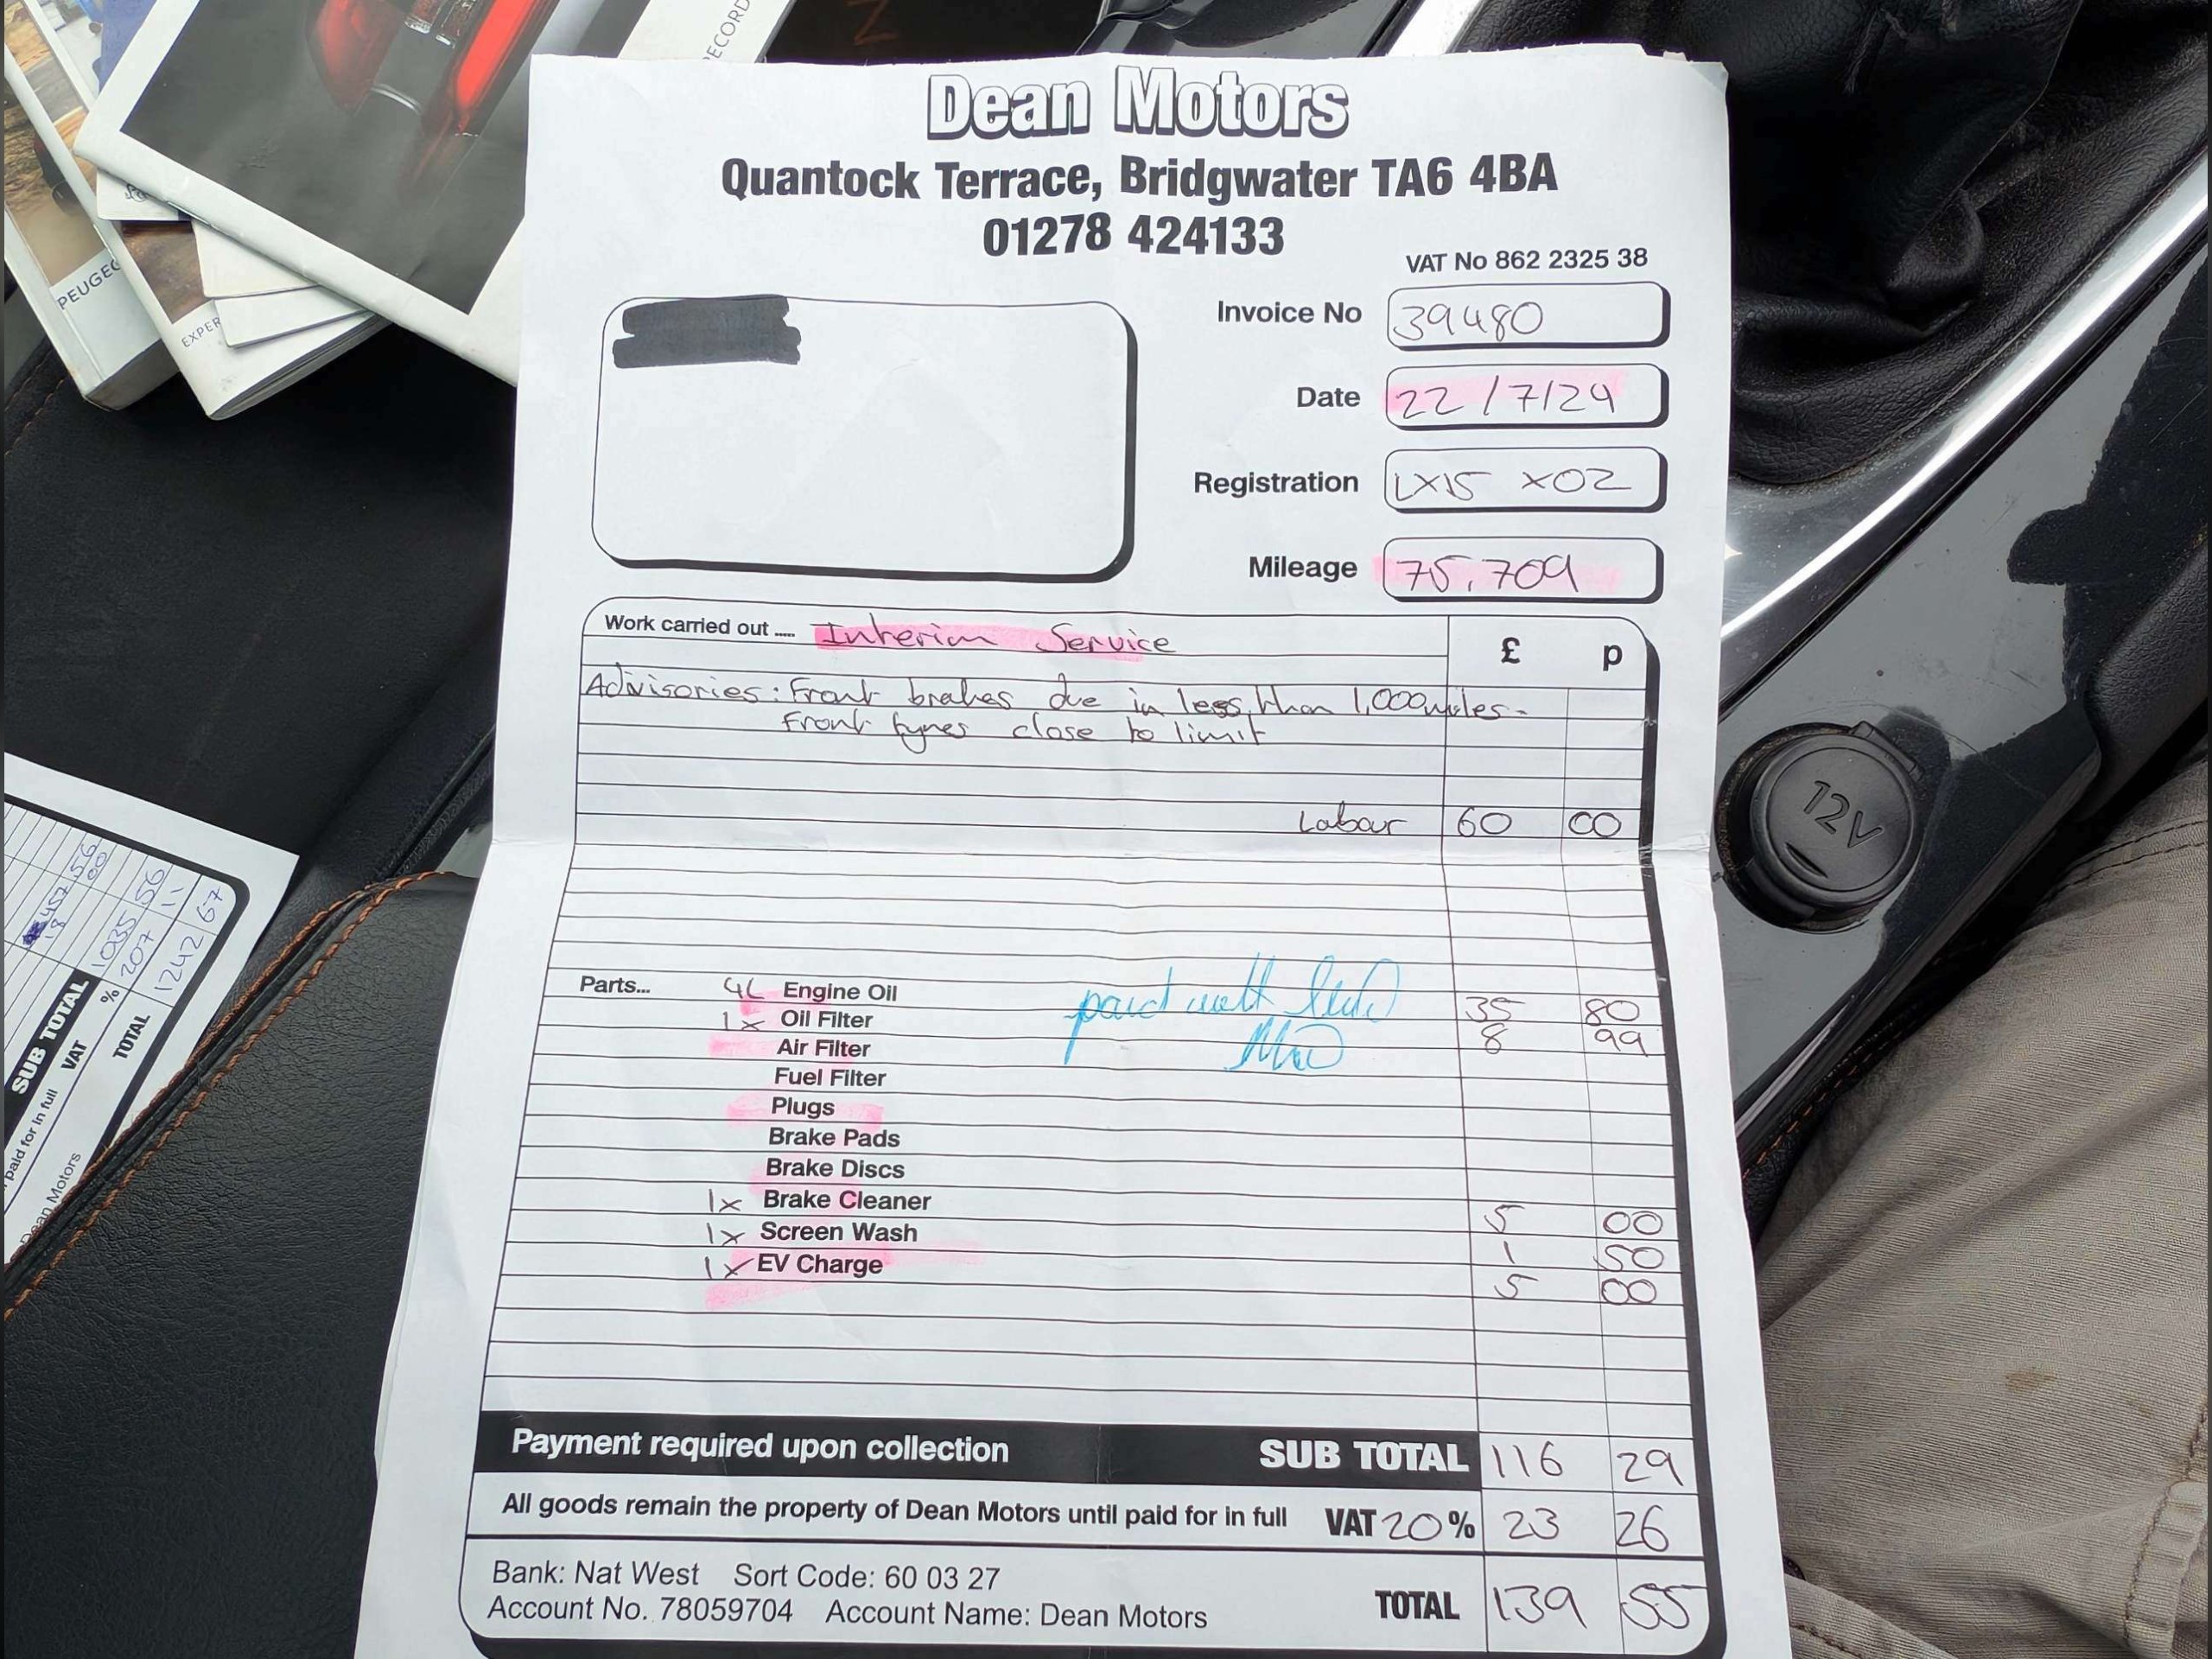 RECORD
PEUGEO
EXPER
Dean Motors
Quantock Terrace, Bridgwater TA6 4BA
01278 424133
VAT No 862 2325 38
Invoice No 39480
Date 22/7/24
Registration LX15 XOZ
Mileage 75,709
Work carried out ..... Interim Service
£ p
Advisories: Front brakes due in less than 1,000 miles.
Front tyres close to limit
Labour 60 00
Parts... 4L Engine Oil 35 80
1x Oil Filter 8 99
Air Filter
Fuel Filter
Plugs
Brake Pads
Brake Discs
1x Brake Cleaner 5 00
1x Screen Wash 1 50
1x EV Charge 5 00
paid
Payment required upon collection SUB TOTAL 116 29
All goods remain the property of Dean Motors until paid for in full VAT 20% 23 26
Bank: Nat West Sort Code: 60 03 27
Account No. 78059704 Account Name: Dean Motors
TOTAL 139 55
12V
457 56
18 00
SUB TOTAL 1035 56
paid for in full VAT % 207 11
TOTAL 1242 67
Dean Motors